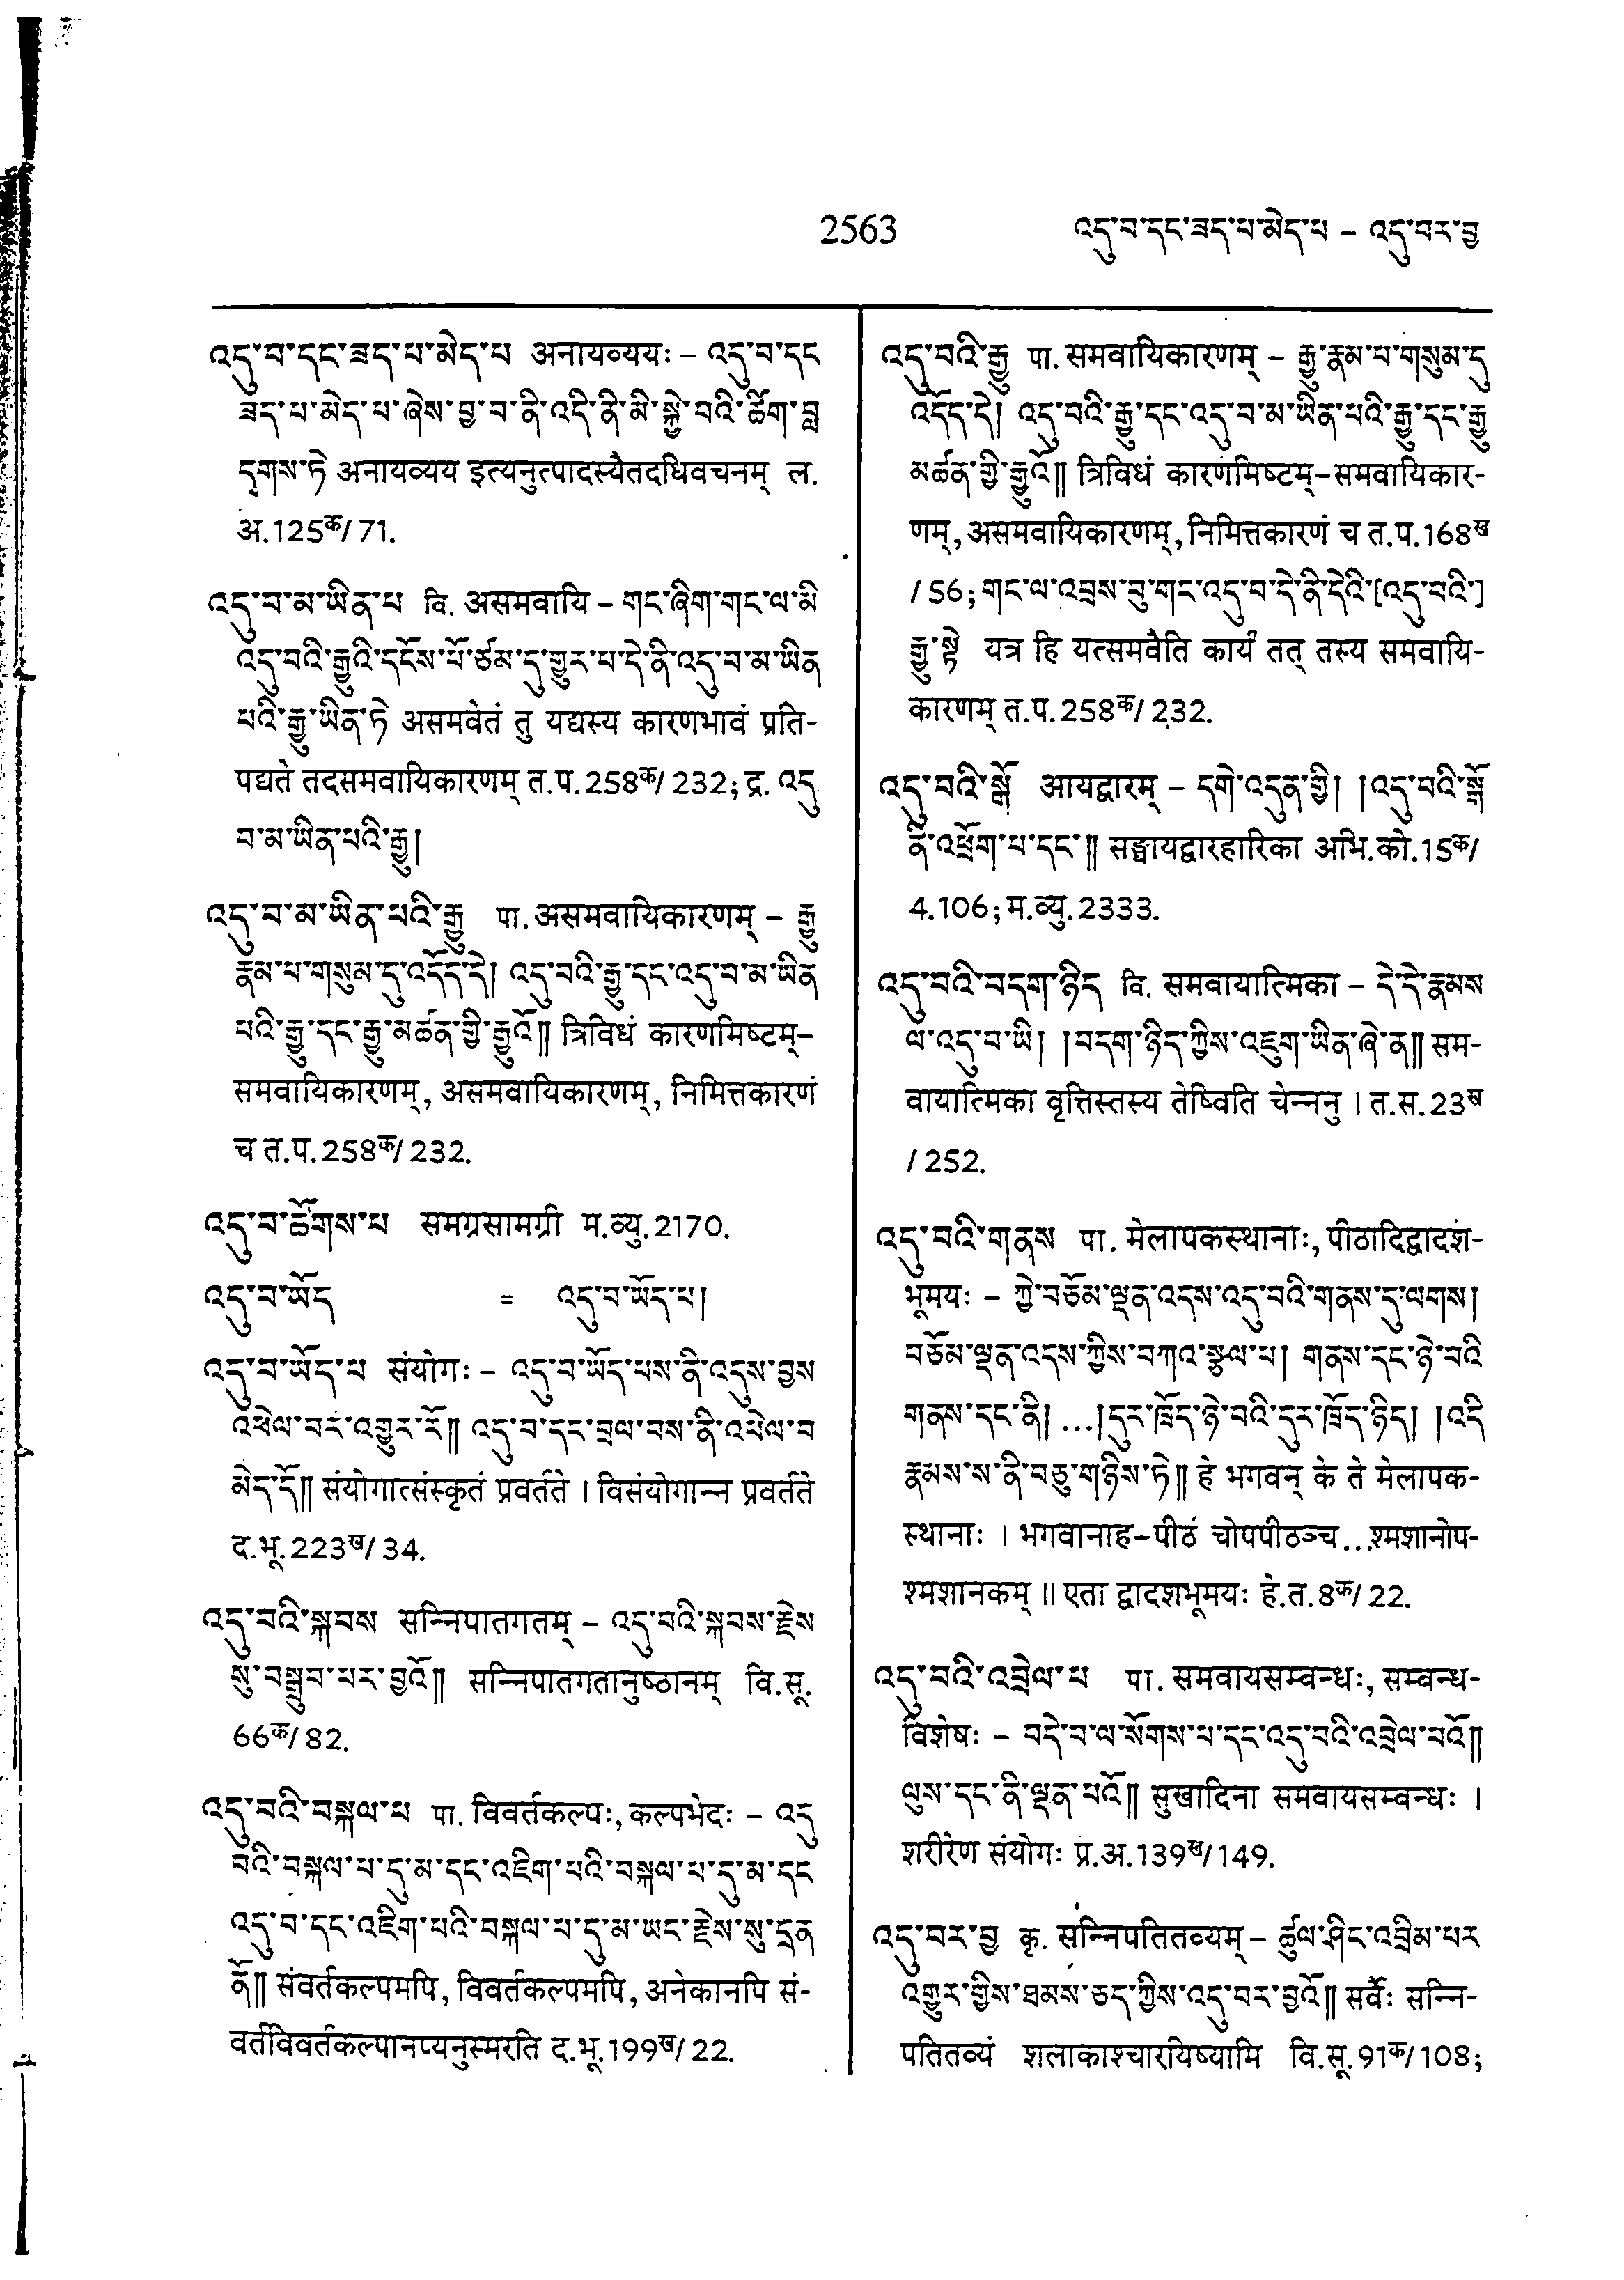 2563
འདུ་བ་དང་ཟད་པ་མེད་པ – འདུ་བར་བྱ
འདུ་བ་དང་ཟད་པ་མེད་པ अनायव्ययः – འདུ་བ་དང
ཟད་པ་མེད་པ་ཞེས་བྱ་བ་ནི་འདི་ནི་མི་སྐྱེ་བའི་ཚིག་བླ
དྭགས་ཏེ अनायव्यय इत्यनुत्पादस्यैतदधिवचनम् ल.
अ.125क/71.
འདུ་བ་མ་ཡིན་པ वि. असमवायि – གང་ཞིག་གང་ལ་མི
འདུ་བའི་རྒྱུའི་དངོས་པོ་ཙམ་དུ་གྱུར་པ་དེ་ནི་འདུ་བ་མ་ཡིན
པའི་རྒྱུ་ཡིན་ཏེ असमवेतं तु यद्यस्य कारणभावं प्रति-
पद्यते तदसमवायिकारणम् त.प.258क/232; द्र. འདུ
བ་མ་ཡིན་པའི་རྒྱུ།
འདུ་བ་མ་ཡིན་པའི་རྒྱུ पा. असमवायिकारणम् – རྒྱུ
རྣམ་པ་གསུམ་དུ་འདོད་དེ། འདུ་བའི་རྒྱུ་དང་འདུ་བ་མ་ཡིན
པའི་རྒྱུ་དང་རྒྱུ་མཚན་གྱི་རྒྱུའོ༎ त्रिविधं कारणमिष्टम्–
समवायिकारणम्, असमवायिकारणम्, निमित्तकारणं
च त.प.258क/232.
འདུ་བ་ཚོགས་པ समग्रसामग्री म.व्यु.2170.
འདུ་བ་ཡོད = འདུ་བ་ཡོད་པ།
འདུ་བ་ཡོད་པ संयोगः – འདུ་བ་ཡོད་པས་ནི་འདུས་བྱས
འཕེལ་བར་འགྱུར་རོ༎ འདུ་བ་དང་བྲལ་བས་ནི་འཕེལ་བ
མེད་དོ༎ संयोगात्संस्कृतं प्रवर्तते । विसंयोगान्न प्रवर्तते
द.भू.223ख/34.
འདུ་བའི་སྐབས सन्निपातगतम् – འདུ་བའི་སྐབས་རྗེས
སུ་བསྒྲུབ་པར་བྱའོ༎ सन्निपातगतानुष्ठानम् वि.सू.
66क/82.
འདུ་བའི་བསྐལ་པ पा. विवर्तकल्पः, कल्पभेदः – འདུ
བའི་བསྐལ་པ་དུ་མ་དང་འཇིག་པའི་བསྐལ་པ་དུ་མ་དང
འདུ་བ་དང་འཇིག་པའི་བསྐལ་པ་དུ་མ་ཡང་རྗེས་སུ་དྲན
ནོ༎ संवर्तकल्पमपि, विवर्तकल्पमपि, अनेकानपि सं-
वर्तविवर्तकल्पानप्यनुस्मरति द.भू.199ख/22.
འདུ་བའི་རྒྱུ पा. समवायिकारणम् – རྒྱུ་རྣམ་པ་གསུམ་དུ
འདོད་དེ། འདུ་བའི་རྒྱུ་དང་འདུ་བ་མ་ཡིན་པའི་རྒྱུ་དང་རྒྱུ
མཚན་གྱི་རྒྱུའོ༎ त्रिविधं कारणमिष्टम्–समवायिकार-
णम्, असमवायिकारणम्, निमित्तकारणं च त.प.168ख
/56; གང་ལ་འབྲས་བུ་གང་འདུ་བ་དེ་ནི་དེའི་[འདུ་བའི་]
རྒྱུ་སྟེ यत्र हि यत्समवैति कार्यं तत् तस्य समवायि-
कारणम् त.प.258क/232.
འདུ་བའི་སྒོ आयद्वारम् – དགེ་འདུན་གྱི། །འདུ་བའི་སྒོ
ནི་འཕྲོག་པ་དང་༎ सङ्घायद्वारहारिका अभि.को.15क/
4.106; म.व्यु.2333.
འདུ་བའི་བདག་ཉིད वि. समवायात्मिका – དེ་དེ་རྣམས
ལ་འདུ་བ་ཡི། །བདག་ཉིད་ཀྱིས་འཇུག་ཡིན་ཞེ་ན༎ सम-
वायात्मिका वृत्तिस्तस्य तेष्विति चेन्ननु । त.स.23ख
/252.
འདུ་བའི་གནས पा. मेलापकस्थानाः, पीठादिद्वादश-
भूमयः – ཀྱེ་བཅོམ་ལྡན་འདས་འདུ་བའི་གནས་དུ་ལགས།
བཅོམ་ལྡན་འདས་ཀྱིས་བཀའ་སྩལ་པ། གནས་དང་ཉེ་བའི
གནས་དང་ནི། ...།དུར་ཁྲོད་ཉེ་བའི་དུར་ཁྲོད་ཉིད། །འདི
རྣམས་ས་ནི་བཅུ་གཉིས་ཏེ༎ हे भगवन् के ते मेलापक-
स्थानाः । भगवानाह–पीठं चोपपीठञ्च...श्मशानोप-
श्मशानकम् ॥ एता द्वादशभूमयः हे.त.8क/22.
འདུ་བའི་འབྲེལ་པ पा. समवायसम्बन्धः, सम्बन्ध-
विशेषः – བདེ་བ་ལ་སོགས་པ་དང་འདུ་བའི་འབྲེལ་པའོ༎
ལུས་དང་ནི་ལྡན་པའོ༎ सुखादिना समवायसम्बन्धः ।
शरीरेण संयोगः प्र.अ.139ख/149.
འདུ་བར་བྱ कृ. सन्निपतितव्यम् – ཚུལ་ཤིང་འབྲིམ་པར
འགྱུར་གྱིས་ཐམས་ཅད་ཀྱིས་འདུ་བར་བྱའོ༎ सर्वैः सन्नि-
पतितव्यं शलाकाश्चारयिष्यामि वि.सू.91क/108;